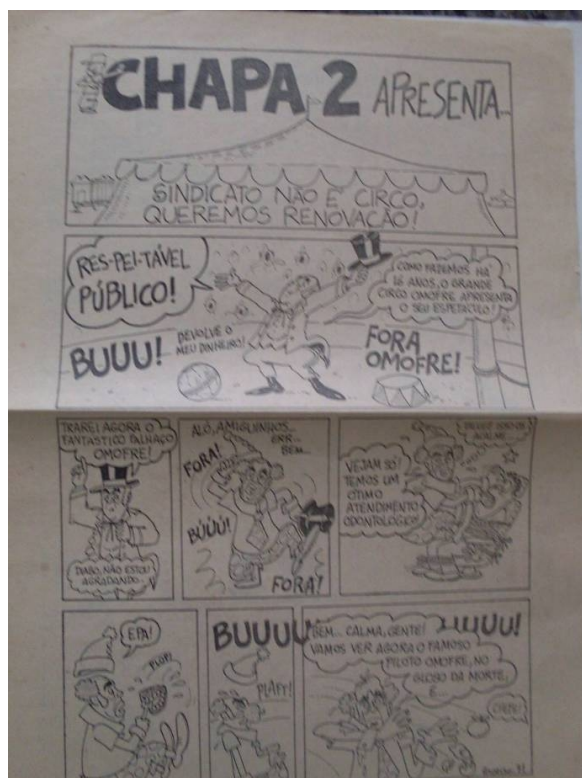 CHAPA 2 APRESENTA...
SINDICATO NÃO É CIRCO,
QUEREMOS RENOVAÇÃO!
RES-PEI-TÁVEL
PÚBLICO!
COMO FAZEMOS HÁ
16 ANOS, O GRANDE
CIRCO OMOFRE APRESENTA
O SEU ESPETÁCULO!
BUUU!
DEVOLVE O
MEU DINHEIRO!
FORA
OMOFRE!
TRAREI AGORA O
FANTÁSTICO PALHAÇO
OMOFRE!
DIABO, NÃO ESTOU
AGRADANDO...
ALÔ, AMIGUINHOS...
ERR...
BEM...
FORA!
BÚÚÚ!
FORA!
VEJAM SÓ!
TEMOS UM
ÓTIMO
ATENDIMENTO
ODONTOLÓGICO!
EPA!
PLOF!
BUUUU
PLAFT!
UUUU!
BEM... CALMA, GENTE!
VAMOS VER AGORA O FAMOSO
PILOTO OMOFRE, NO
GLOBO DA MORTE,
E